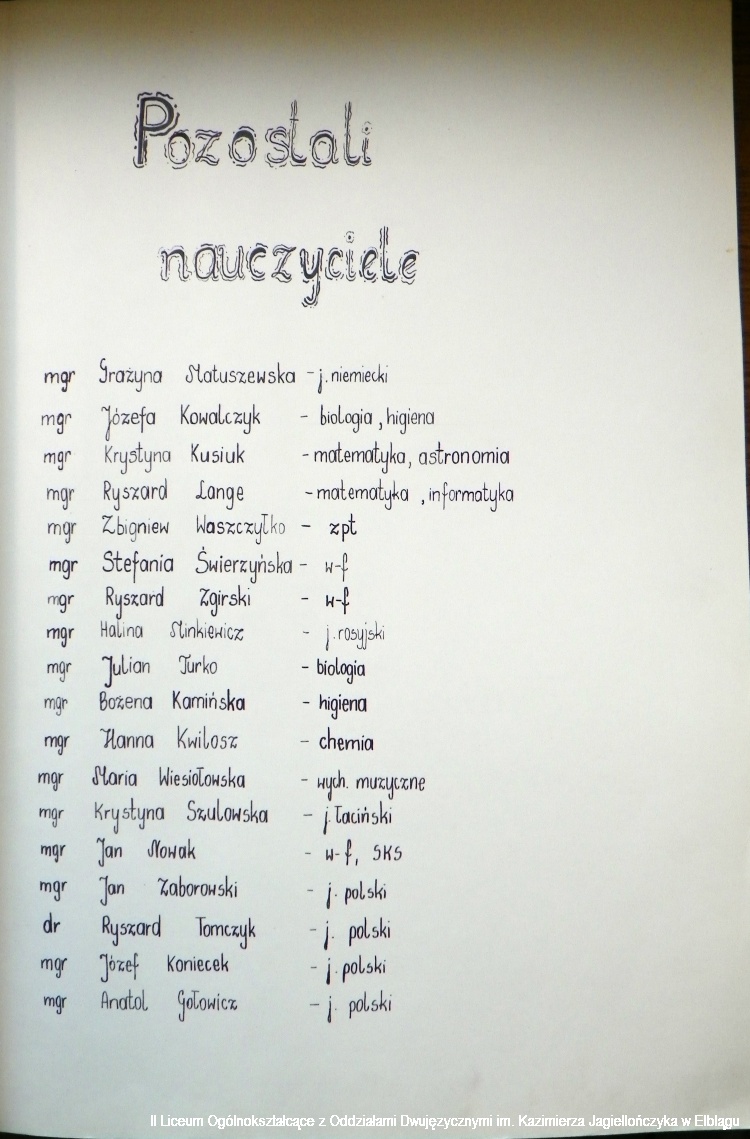 Pozostali
nauczyciele
mgr Grażyna Matuszewska - j. niemiecki
mgr Józefa Kowalczyk - biologia, higiena
mgr Krystyna Kusiuk - matematyka, astronomia
mgr Ryszard Lange - matematyka, informatyka
mgr Zbigniew Waszczyłko - zpt
mgr Stefania Świerzyńska - w-f
mgr Ryszard Zgirski - w-f
mgr Halina Minkiewicz - j. rosyjski
mgr Julian Turko - biologia
mgr Bożena Kamińska - higiena
mgr Hanna Kwilosz - chemia
mgr Maria Wiesiołowska - wych. muzyczne
mgr Krystyna Szulowska - j. łaciński
mgr Jan Nowak - w-f, SKS
mgr Jan Zaborowski - j. polski
dr Ryszard Tomczyk - j. polski
mgr Józef Koniecek - j. polski
mgr Anatol Gołowicz - j. polski
II Liceum Ogólnokształcące z Oddziałami Dwujęzycznymi im. Kazimierza Jagiellończyka w Elblągu